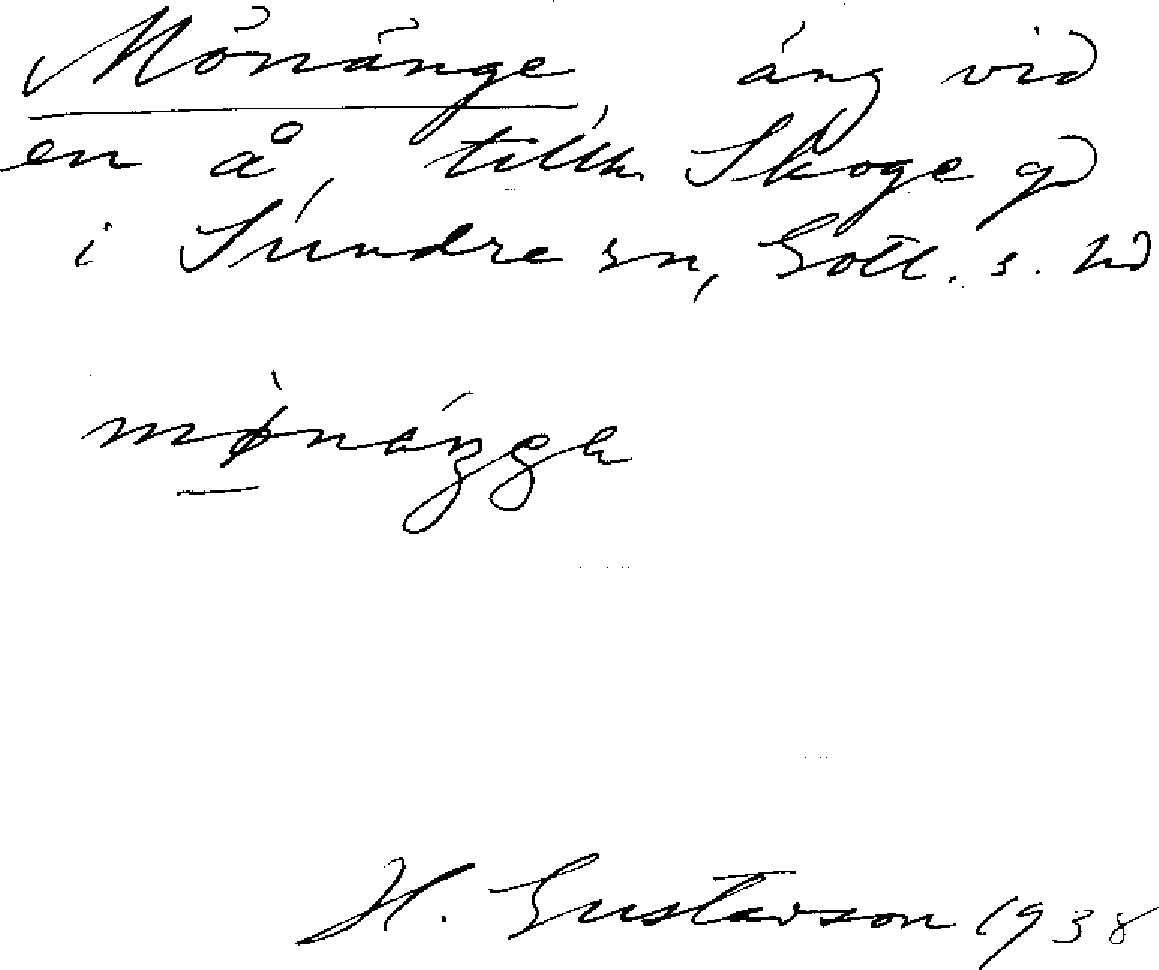 Mönänge äng vid
en å, tillh. Skoge gd
i Sundre sn, Gotl. s. hd
H. Gustavson 1938